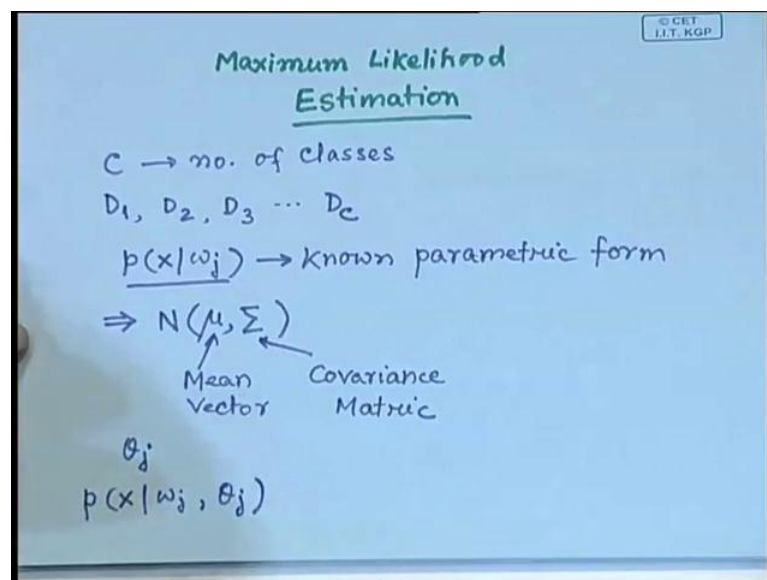 © CET
I.I.T. KGP
Maximum Likelihood
Estimation
C → no. of classes
D₁, D₂, D₃ ... D_c
p(x|ω_j) → Known parametric form
⇒ N(μ, Σ)
Mean Covariance
Vector Matric
θ_j
p(x|ω_j, θ_j)